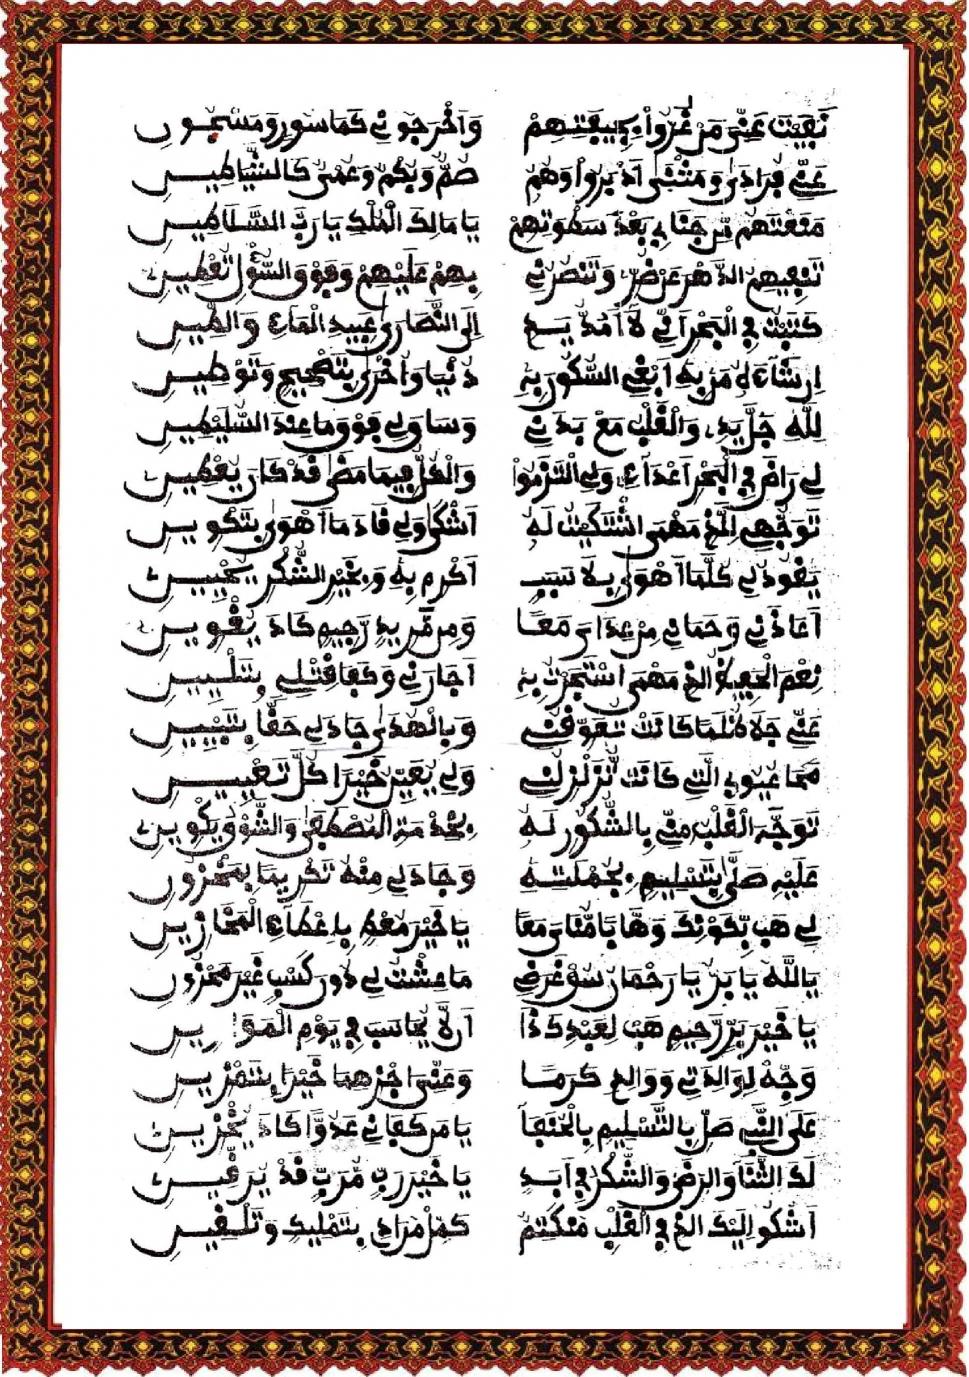 نَفَيْتَ عَنِّيَ مَنْ غُرُّواْ بِبَيْعَتِهِمْ وَأَخْرَجُونِي كَمَاسُورٍ وَمَسْجُونِ
عَنِّي فُرَادَى وَمَثْنَى أَدْبَرُواْ وَهُمُ صُمٌّ وَبُكْمٌ وَعُمْيٌ كَالشَّيَاطِينِ
مَنَعْتَهُم مِّن جَنَابِي بَعْدَ سَطْوَتِهِمْ يَا مَالِكَ الْمُلْكِ يَا رَبَّ السَّلَاطِينِ
تَنْفِيهِمُ الدَّهْرَ عَنْ ضُرِّي وَتَنْصُرُنِي بِهِمْ عَلَيْهِمْ وَفَوْقَ السُّؤْلِ تُعْطِينِي
كَتَبْتُ فِي الْبَحْرِ أَنِّي لَا أَمُدُّ يَدِي إِلَى النَّصَارَى عَبِيدِ الْمَاءِ وَالطِّينِ
إِن شَاءَ لِي مَن بِهِ أَبْغِي السُّكُونَ بِهِ دُنْيَا وَأُخْرَى بِتَصْحِيحٍ وَتَوْطِينِ
لِلَّهِ جَلَّ يَدِي وَالْقَلْبُ مَعْ بَدَنِي وَسَاقَ لِي فَوْقَ مَا عِنْدَ السَّلَاطِينِ
لِي رَاضَ فِي الْبَحْرِ أَعْدَاءً وَلِي الْتَزَمُواْ وَالْكُلُّ فِيمَا مَضَى قَدْ كَانَ يُعْطِينِ
تَوَجُّهِي لِلَّذِي مَهْمَى اشْتَكَيْتُ لَهُ أَشْكَى وَلِي قَادَ مَا أَهْوَى بِتَكْوِينِ
يَقُودُ لِي كُلَّمَا أَهْوَى بِلَا سَبَبٍ أَكْرِمْ بِهِ وَبِخَيْرِ الشُّكْرِ يُحْيِينِي
أَعَاذَنِي وَحَمَانِي مِنْ عِدَايَ مَعًا وَمِن مَّرِيدٍ رَّجِيمٍ كَادَ يُغْوِينِي
نِعْمَ الْحَفِيظُ الَّذِي مَهْمَى اسْتَجَرْتُ بِهِ أَجَارَنِي وَكَفَى قَتْلِي بِتَلْيِينِ
عَنِّي جَلَا ظُلَمًا كَانَتْ تُعَوِّقُنِي وَبِالْهُدَى جَادَ لِي حَقًّا بِتَبْيِينِ
مَحَا عُيُوبِي الَّتِي كَانَتْ تُزَلْزِلُنِي وَلِي يُعَيِّنُ خَيْرًا كُلَّ تَعْيِينِ
تَوَجَّهَ الْقَلْبُ مِنِّي بِالشُّكُورِ لَهُ بِخِدْمَةِ الْمُصْطَفَى وَالشَّوْقُ يَكْوِينِي
عَلَيْهِ صَلَّى بِتَسْلِيمٍ بِجُمْلَتِهِ وَجَادَ لِي مِنْهُ تَكْرِيمًا بِمَخْزُونِ
لِي هَب بِّكَوْنِكَ وَهَّابًا مُنَايَ مَعًا يَا خَيْرَ مُعْطٍ بِإِعْطَاءِ الْمَخَازِينِ
يَا اللَّهُ يَا بَرُّ يَا رَحْمَانُ سُقْ غَرَضِي مَا عِشْتُ لِي دُونَ كَسْبٍ غَيْرَ مَحْزُونِ
يَا خَيْرَ بَرٍّ رَّحِيمٍ هَبْ لِعَبْدِكَ ذَا أَن لَّا يُحَاسَبَ فِي يَوْمِ الْمَوَازِينِ
وَجِّهْ لِوَالِدَتِي وَوَالِدِي كَرَمًا وَعَنِّيَ اجْزِهِمَا خَيْرًا بِتَمْزِينِ
عَلَى النَّبِي صَلِّ بِالتَّسْلِيمِ يَا مَن كَفَانِي عَدُوًّا كَادَ يُخْزِينِي
لَكَ الثَّنَا وَالرِّضَى وَالشُّكْرُ فِي أَبَدٍ يَا خَيْرَ رَبٍّ مُّرَبٍّ قَدْ يُرَقِّينِي
أَشْكُو إِلَيْكَ الَّذِي فِي الْقَلْبِ مُنْكَتِمٌ كَمِّلْ مُرَادِي بِتَمْلِيكٍ وَتَلْقِينِ